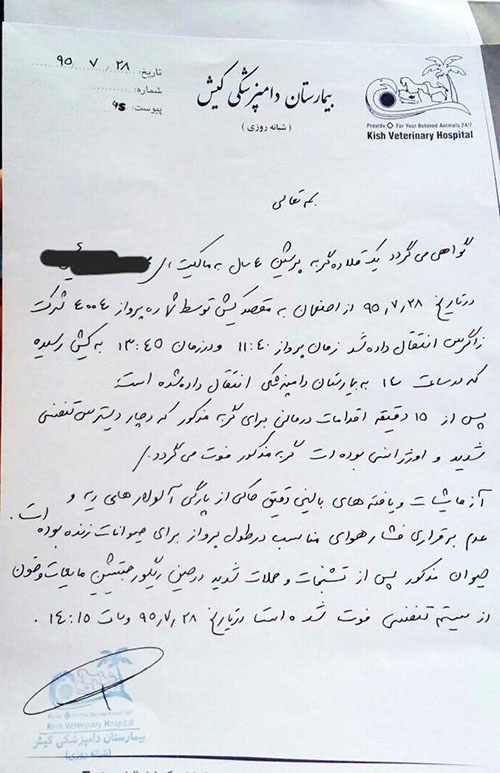 تاریخ: ۹۵ / ۷ / ۲۸
شماره:
پیوست:
بیمارستان دامپزشکی کیش
(شبانه روزی)
Provide For Your Beloved Animals 24/7
Kish Veterinary Hospital
بسمه تعالی
گواهی می گردد یک قلاده گربه پرشین ۴ سال به مالکیت
در تاریخ ۹۵,۷,۲۸ از اصفهان به مقصد کیش توسط شماره پرواز ۴۰۰۴ شرکت
زاگرس انتقال داده شد زمان پرواز ۱۱:۴۰ و در زمان ۱۳:۴۵ به کیش رسیده
که در ساعت ۱۴ به بیمارستان دامپزشکی انتقال داده شده است.
پس از ۱۵ دقیقه اقدامات درمانی برای گربه مذکور که دچار دیسترس تنفسی
شدید و اورژانسی بوده است گربه مذکور فوت می گردد.
آزمایشات و یافته های بالینی دقیق حاکی از پارگی آلوئولار های ریه و
عدم برقراری فشار هوای مناسب در طول پرواز برای حیوانات زنده بوده است.
حیوان مذکور پس از تشنجات و حملات شدید در حین مایعات و خون
از سیستم تنفسی فوت شده است در تاریخ ۹۵,۷,۲۸ و ساعت ۱۴:۱۵ .
Provide For Your Beloved Animals 24/7
Kish Veterinary Hospital
بیمارستان دامپزشکی کیش
(شبانه روزی)